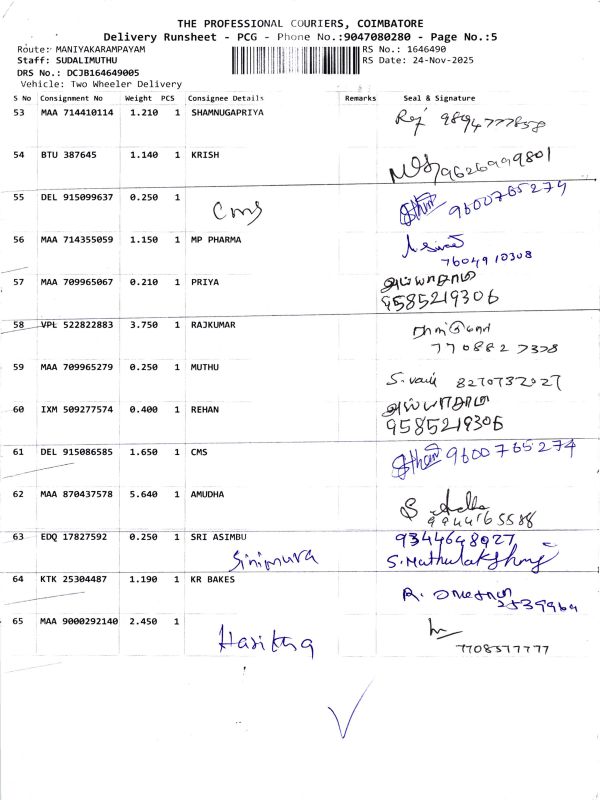 THE PROFESSIONAL COURIERS, COIMBATORE
Delivery Runsheet - PCG - Phone No.:9047080280 - Page No.:5
Route: MANIYAKARAMPAYAM RS No.: 1646490
Staff: SUDALIMUTHU RS Date: 24-Nov-2025
DRS No.: DCJB164649005
Vehicle: Two Wheeler Delivery
S No Consignment No Weight PCS Consignee Details Remarks Seal & Signature
53 MAA 714410114 1.210 1 SHAMNUGAPRIYA
54 BTU 387645 1.140 1 KRISH 9626999801
55 DEL 915099637 0.250 1 Cms 9600765274
56 MAA 714355059 1.150 1 MP PHARMA
7604910308
57 MAA 709965067 0.210 1 PRIYA
9585219306
58 VPL 522822883 3.750 1 RAJKUMAR
59 MAA 709965279 0.250 1 MUTHU
60 IXM 509277574 0.400 1 REHAN
9585219306
61 DEL 915086585 1.650 1 CMS 9600765274
62 MAA 870437578 5.640 1 AMUDHA
63 EDQ 17827592 0.250 1 SRI ASIMBU 9344648027
64 KTK 25304487 1.190 1 KR BAKES
65 MAA 9000292140 2.450 1